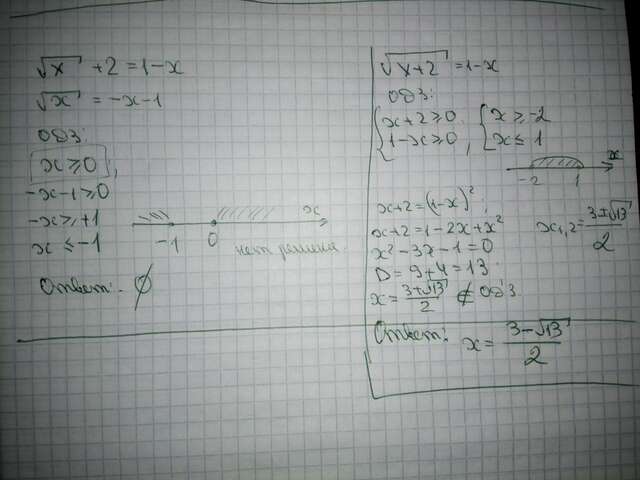 √x + 2 = 1 - x
√x = -x - 1
ОДЗ:
x ≥ 0,
-x - 1 ≥ 0
-x ≥ +1
x ≤ -1
-1 0 x
нет решения.
Ответ: ∅
√x+2 = 1 - x
ОДЗ:
{ x + 2 ≥ 0 { x ≥ -2
1 - x ≥ 0, x ≤ 1
-2 1 x
x + 2 = (1 - x)²;
x + 2 = 1 - 2x + x² x₁,₂ = (3 ± √13)/2
x² - 3x - 1 = 0
D = 9 + 4 = 13.
x = (3 + √13)/2 ∉ ОДЗ.
Ответ: x = (3 - √13)/2